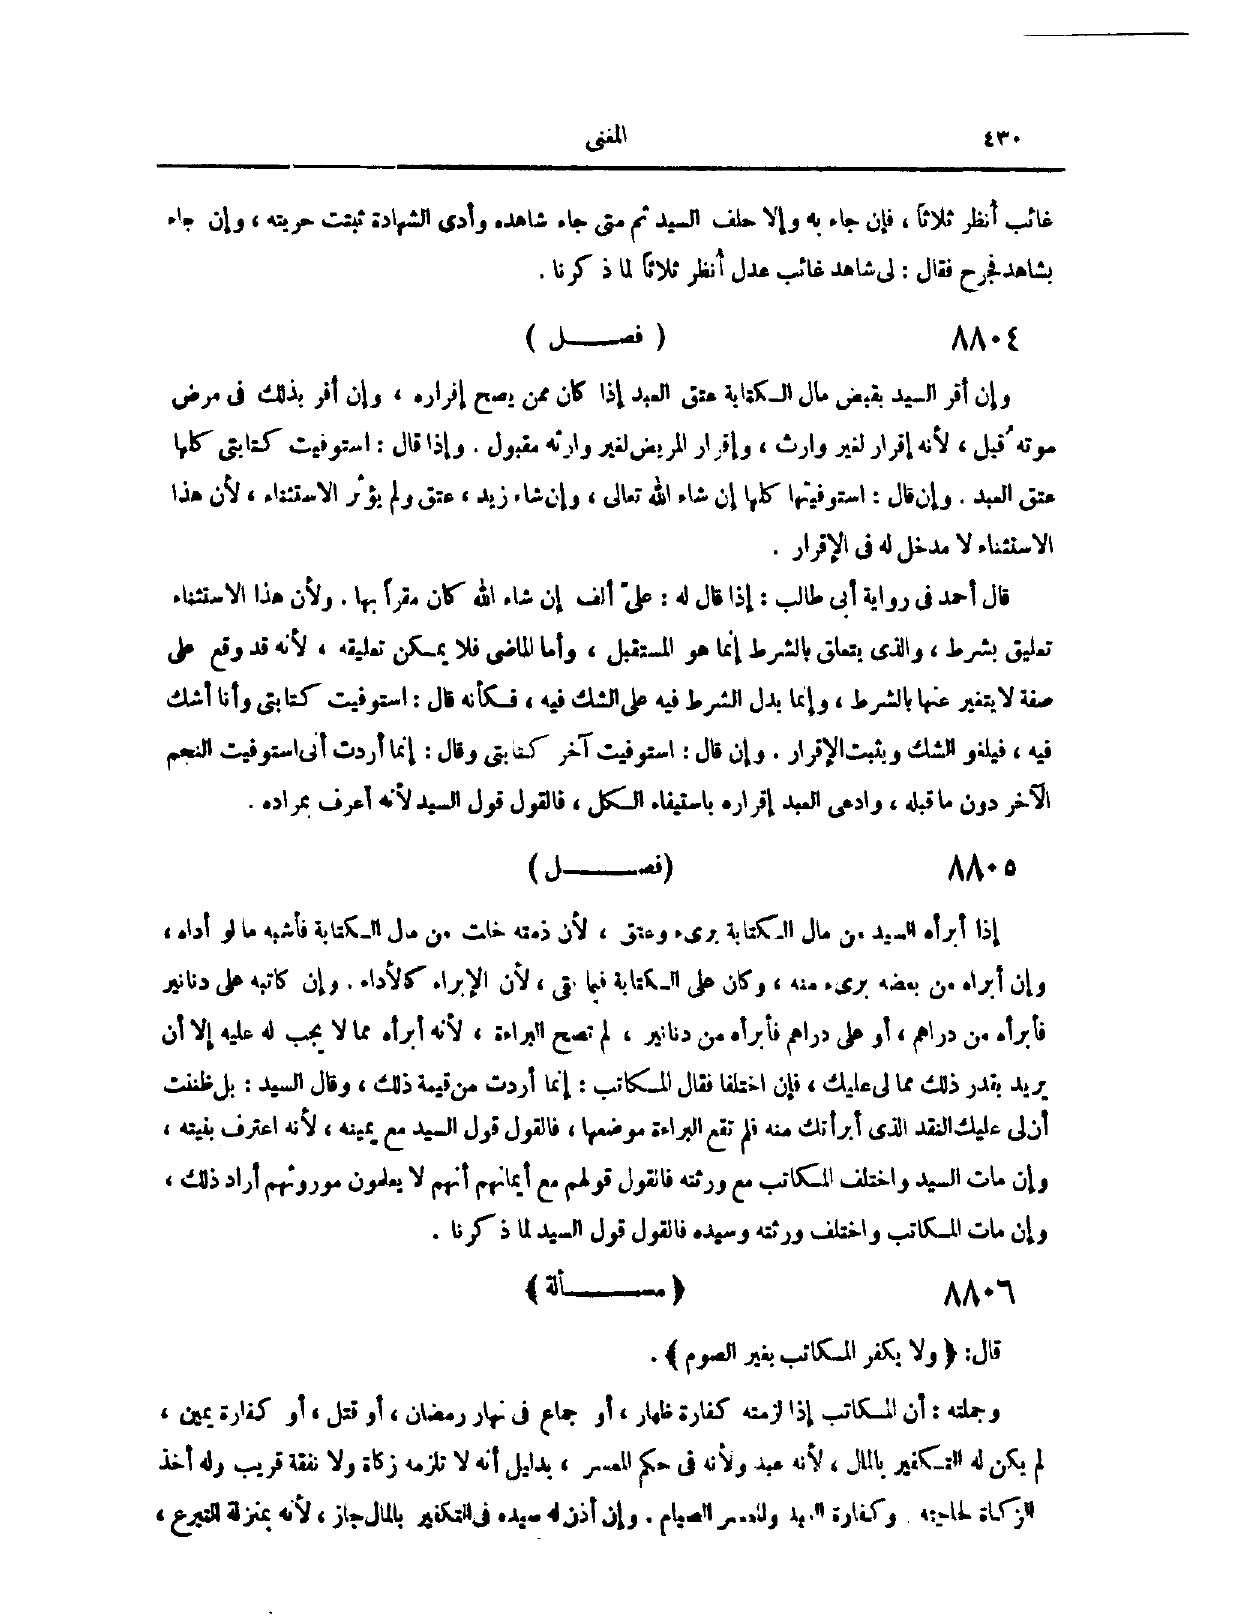 ٤٣٠
المغنى
غائب أنظر ثلاثاً ، فإن جاء به وإلا حلف السيد ثم متى جاء شاهده وأدى الشهادة ثبتت حريته ، وإن جاء
بشاهد فجرح فقال : لى شاهد غائب عدل أنظر ثلاثاً لما ذكرنا .
٨٨٠٤
( فصـــــل )
وإن أقر السيد بقبض مال الكتابة عتق العبد إذا كان ممن يصح إقراره ، وإن أقر بذلك فى مرض
موته قُبل ، لأنه إقرار لغير وارث ، وإقرار المريض لغير وارثه مقبول . وإذا قال : استوفيت كتابتى كلها
عتق العبد . وإن قال : استوفيتها كلها إن شاء الله تعالى ، وإن شاء زيد ، عتق ولم يؤثر الاستثناء ، لأن هذا
الاستثناء لا مدخل له فى الإقرار .
قال أحمد فى رواية أبى طالب : إذا قال له : علىّ ألف إن شاء الله كان مقراً بها . ولأن هذا الاستثناء
تعليق بشرط ، والذى يتعلق بالشرط إنما هو المستقبل ، وأما الماضى فلا يمكن تعليقه ، لأنه قد وقع على
صفة لا يتغير عنها بالشرط ، وإنما يدل الشرط فيه على الشك فيه ، فكأنه قال : استوفيت كتابتى وأنا أشك
فيه ، فيلغو الشك ويثبت الإقرار . وإن قال : استوفيت آخر كتابتى وقال : إنما أردت أنى استوفيت النجم
الآخر دون ما قبله ، وادعى العبد إقراره باستيفاء الكل ، فالقول قول السيد لأنه أعرف بمراده .
٨٨٠٥
(فصـــــل )
إذا أبرأه السيد من مال الكتابة برىء وعتق ، لأن ذمته خلت من مال الكتابة فأشبه ما لو أداه ،
وإن أبراه من بعضه برىء منه ، وكان على الكتابة فيما بقى ، لأن الإبراء كالأداء . وإن كاتبه على دنانير
فأبرأه من دراهم ، أو على دراهم فأبرأه من دنانير ، لم تصح البراءة ، لأنه أبرأه مما لا يجب له عليه إلا أن
يريد بقدر ذلك مما لى عليك ، فإن اختلفا فقال المكاتب : إنما أردت من قيمة ذلك ، وقال السيد : بل ظننت
أن لى عليك النقد الذى أبرأتك منه فلم تقع البراءة موضعها ، فالقول قول السيد مع يمينه ، لأنه اعترف بنيته ،
وإن مات السيد واختلف المكاتب مع ورثته فالقول قولهم مع أيمانهم أنهم لا يعلمون موروثهم أراد ذلك ،
وإن مات المكاتب واختلف ورثته وسيده فالقول قول السيد لما ذكرنا .
٨٨٠٦
﴿ مســـــألة ﴾
قال: ﴿ ولا يكفر المكاتب بغير الصوم ﴾ .
وجملته : أن المكاتب إذا لزمته كفارة ظهار ، أو جماع فى نهار رمضان ، أو قتل ، أو كفارة يمين ،
لم يكن له التكفير بالمال ، لأنه عبد ولأنه فى حكم المعسر ، بدليل أنه لا تلزمه زكاة ولا نفقة قريب وله أخذ
الزكاة لحاجته . وكفارة العبد والمعسر الصيام . وإن أذن له سيده فى التكفير بالمال جاز ، لأنه بمنزلة التبرع ،